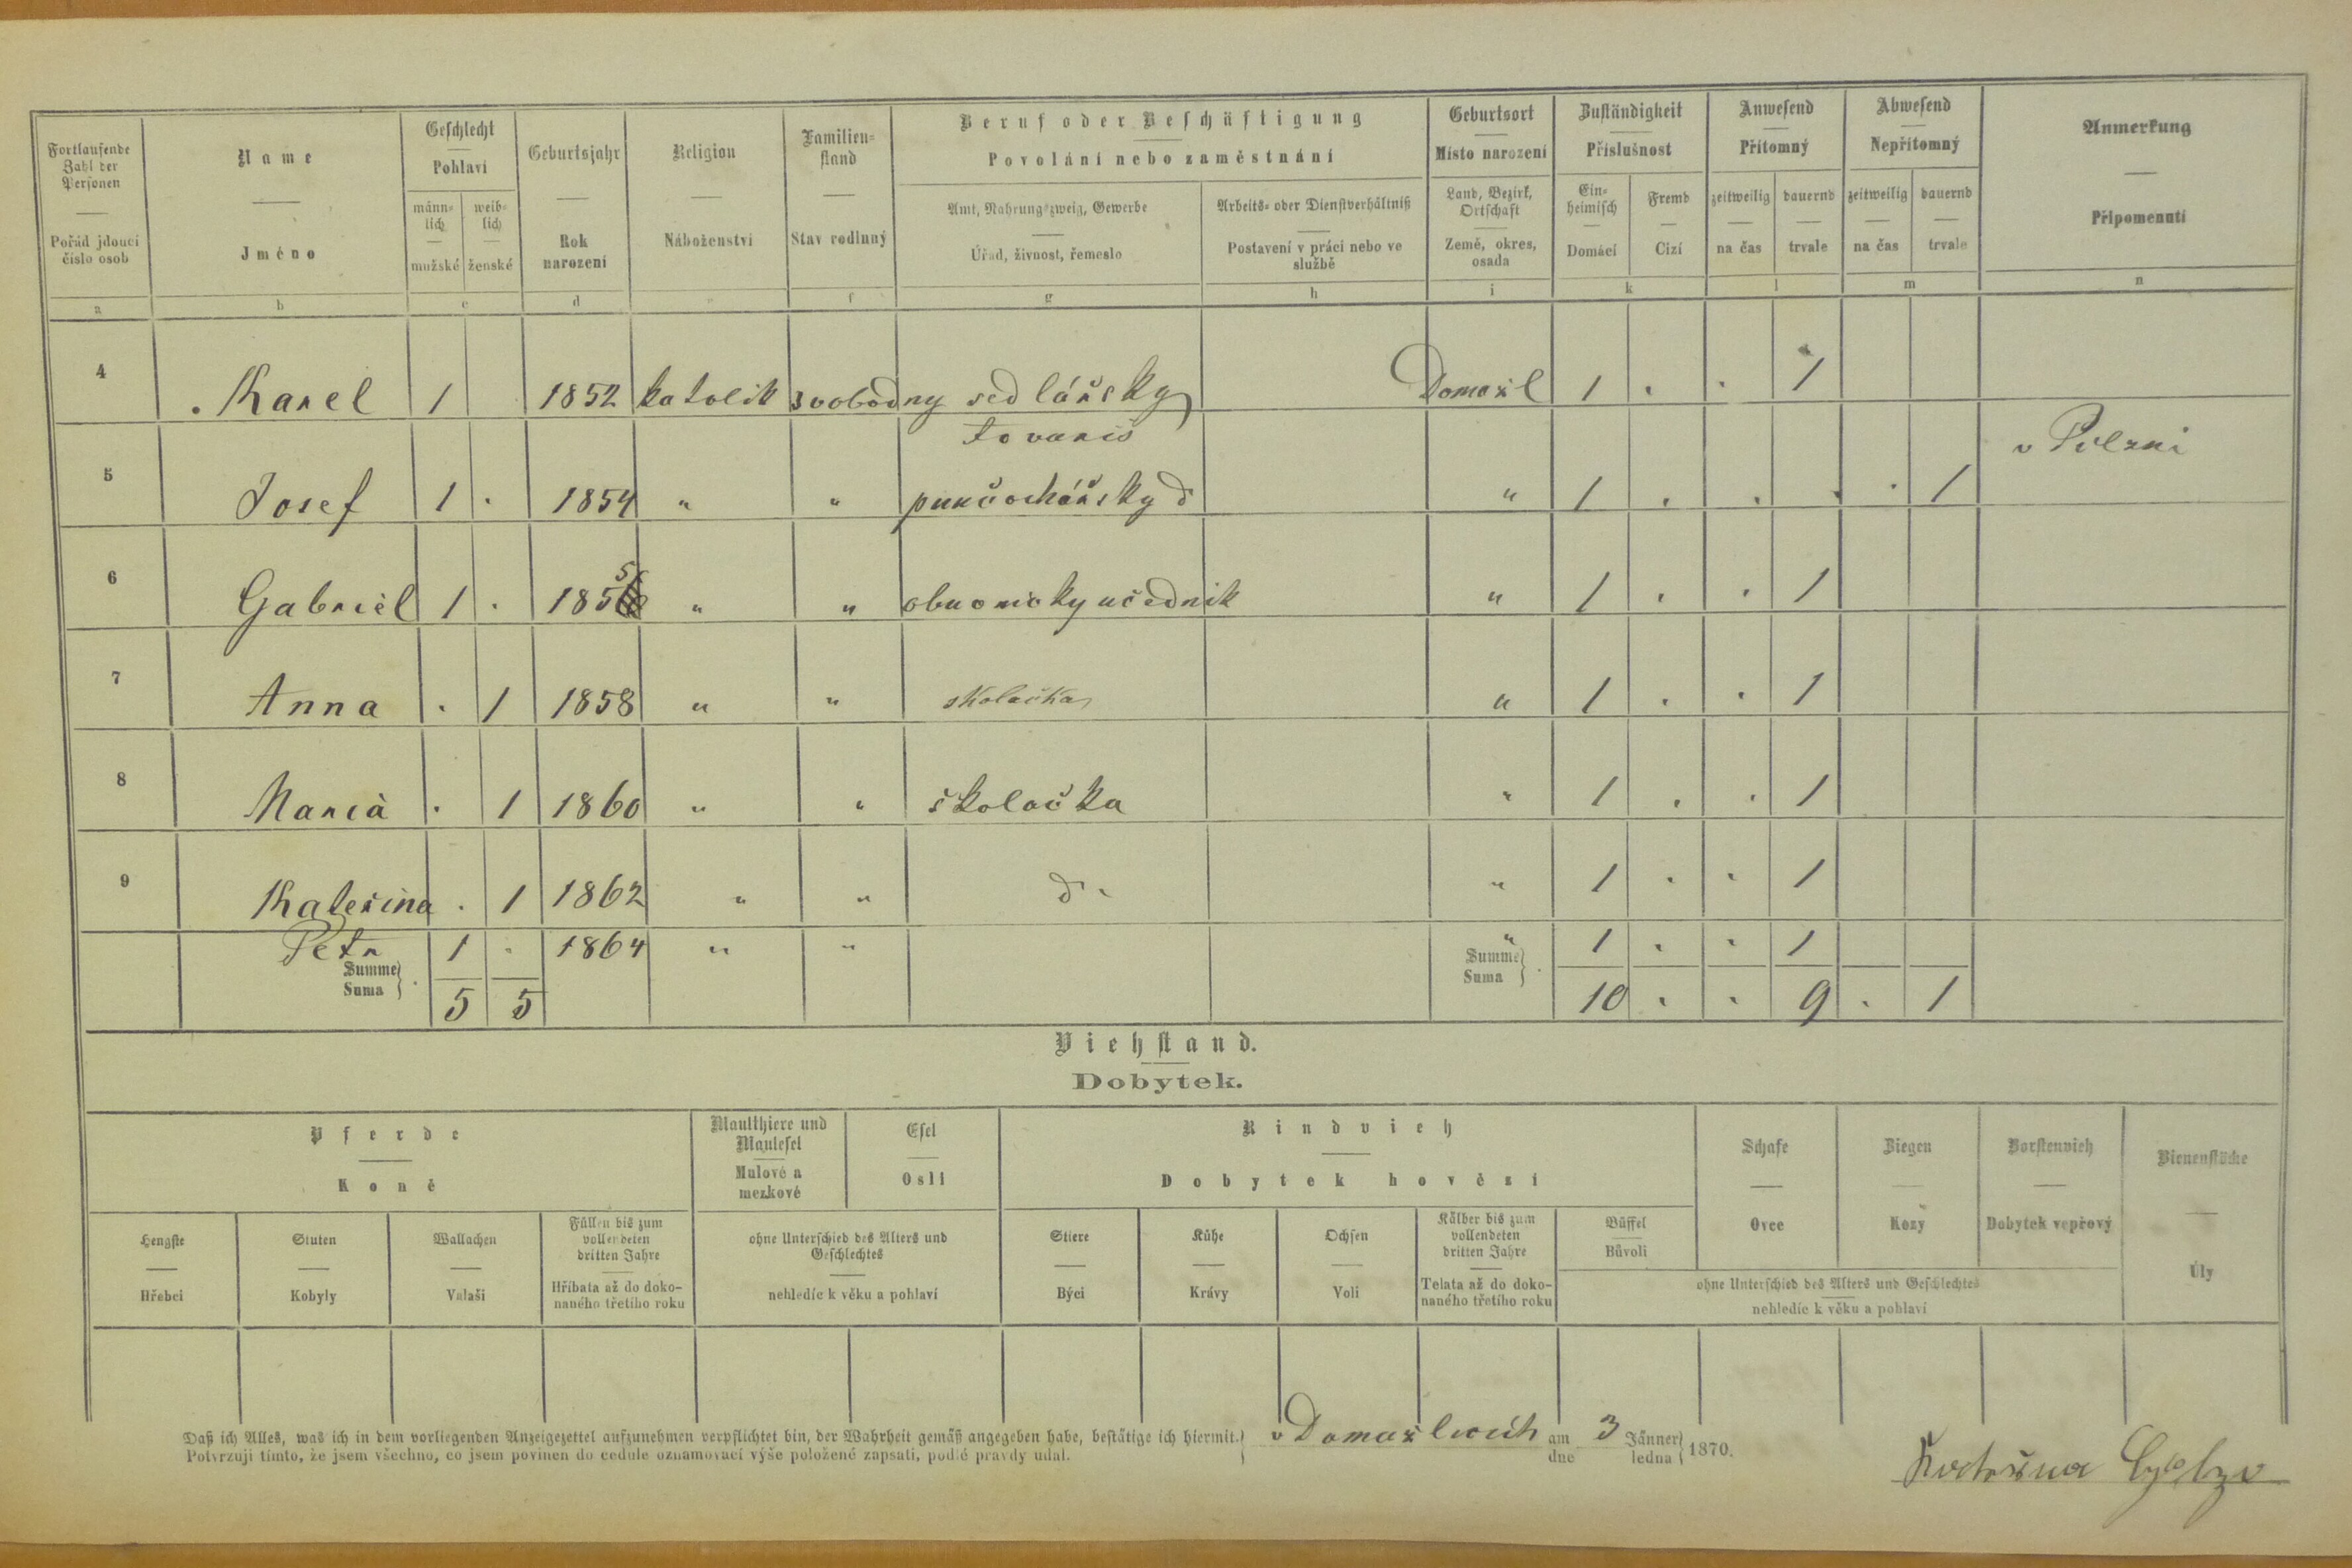 Fortlaufende Zahl der Personen
Pořád jdoucí číslo osob
Name
Jméno
Geschlecht
Pohlaví
männ-lich
mužské
weib-lich
ženské
Geburtsjahr
Rok narození
Religion
Náboženství
Familien-stand
Stav rodinný
Beruf oder Beschäftigung
Povolání nebo zaměstnání
Amt, Nahrungszweig, Gewerbe
Úřad, živnost, řemeslo
Arbeits- oder Dienstverhältniß
Postavení v práci nebo ve službě
Geburtsort
Místo narození
Land, Bezirk, Ortschaft
Země, okres, osada
Zuständigkeit
Příslušnost
Ein-heimisch
Domácí
Fremd
Cizí
Anwesend
Přítomný
zeitweilig
na čas
dauernd
trvale
Abwesend
Nepřítomný
zeitweilig
na čas
dauernd
trvale
Anmerkung
Připomenutí
a b c d e f g h i k l m n
4 Karel 1 1852 katolik svobodny sedlářsky Domažl 1 . . 1
tovariš
v Pilzni
5 Josef 1 . 1854 " " punčochářsky d " 1 . . . . 1
6 Gabriel 1 . 1855 " " obuvnicky učednik " 1 . . 1
7 Anna . 1 1858 " " školačka " 1 . . 1
8 Maria . 1 1860 " " školačka " 1 . . 1
9 Kateřina . 1 1862 " " d " 1 . . 1
Petr 1 . 1864 " " " 1 . . 1
Summe
Suma 5 5
Summe
Suma 10 . . 9 . 1
Viehstand.
Dobytek.
Pferde
Koně
Maulthiere und Maulesel
Mulové a mezkové
Esel
Osli
Rindvieh
Dobytek hovězí
Schafe
Ovce
Ziegen
Kozy
Borstenvieh
Dobytek vepřový
Bienenstöcke
Úly
Hengste
Hřebci
Stuten
Kobyly
Wallachen
Valaši
Füllen bis zum vollendeten dritten Jahre
Hříbata až do doko-naného třetího roku
ohne Unterschied des Alters und Geschlechtes
nehledíc k věku a pohlaví
Stiere
Býci
Kühe
Krávy
Ochsen
Voli
Kälber bis zum vollendeten dritten Jahre
Telata až do doko-naného třetího roku
Büffel
Bůvoli
ohne Unterschied des Alters und Geschlechtes
nehledíc k věku a pohlaví
Daß ich Alles, was ich in dem vorliegenden Anzeigezettel aufzunehmen verpflichtet bin, der Wahrheit gemäß angegeben habe, bestätige ich hiermit.
Potvrzuji tímto, že jsem všechno, co jsem povinen do cedule oznamovací výše položené zapsati, podlé pravdy udal.
v Domažlicích am dne 3 Jänner ledna 1870.
Kateřina